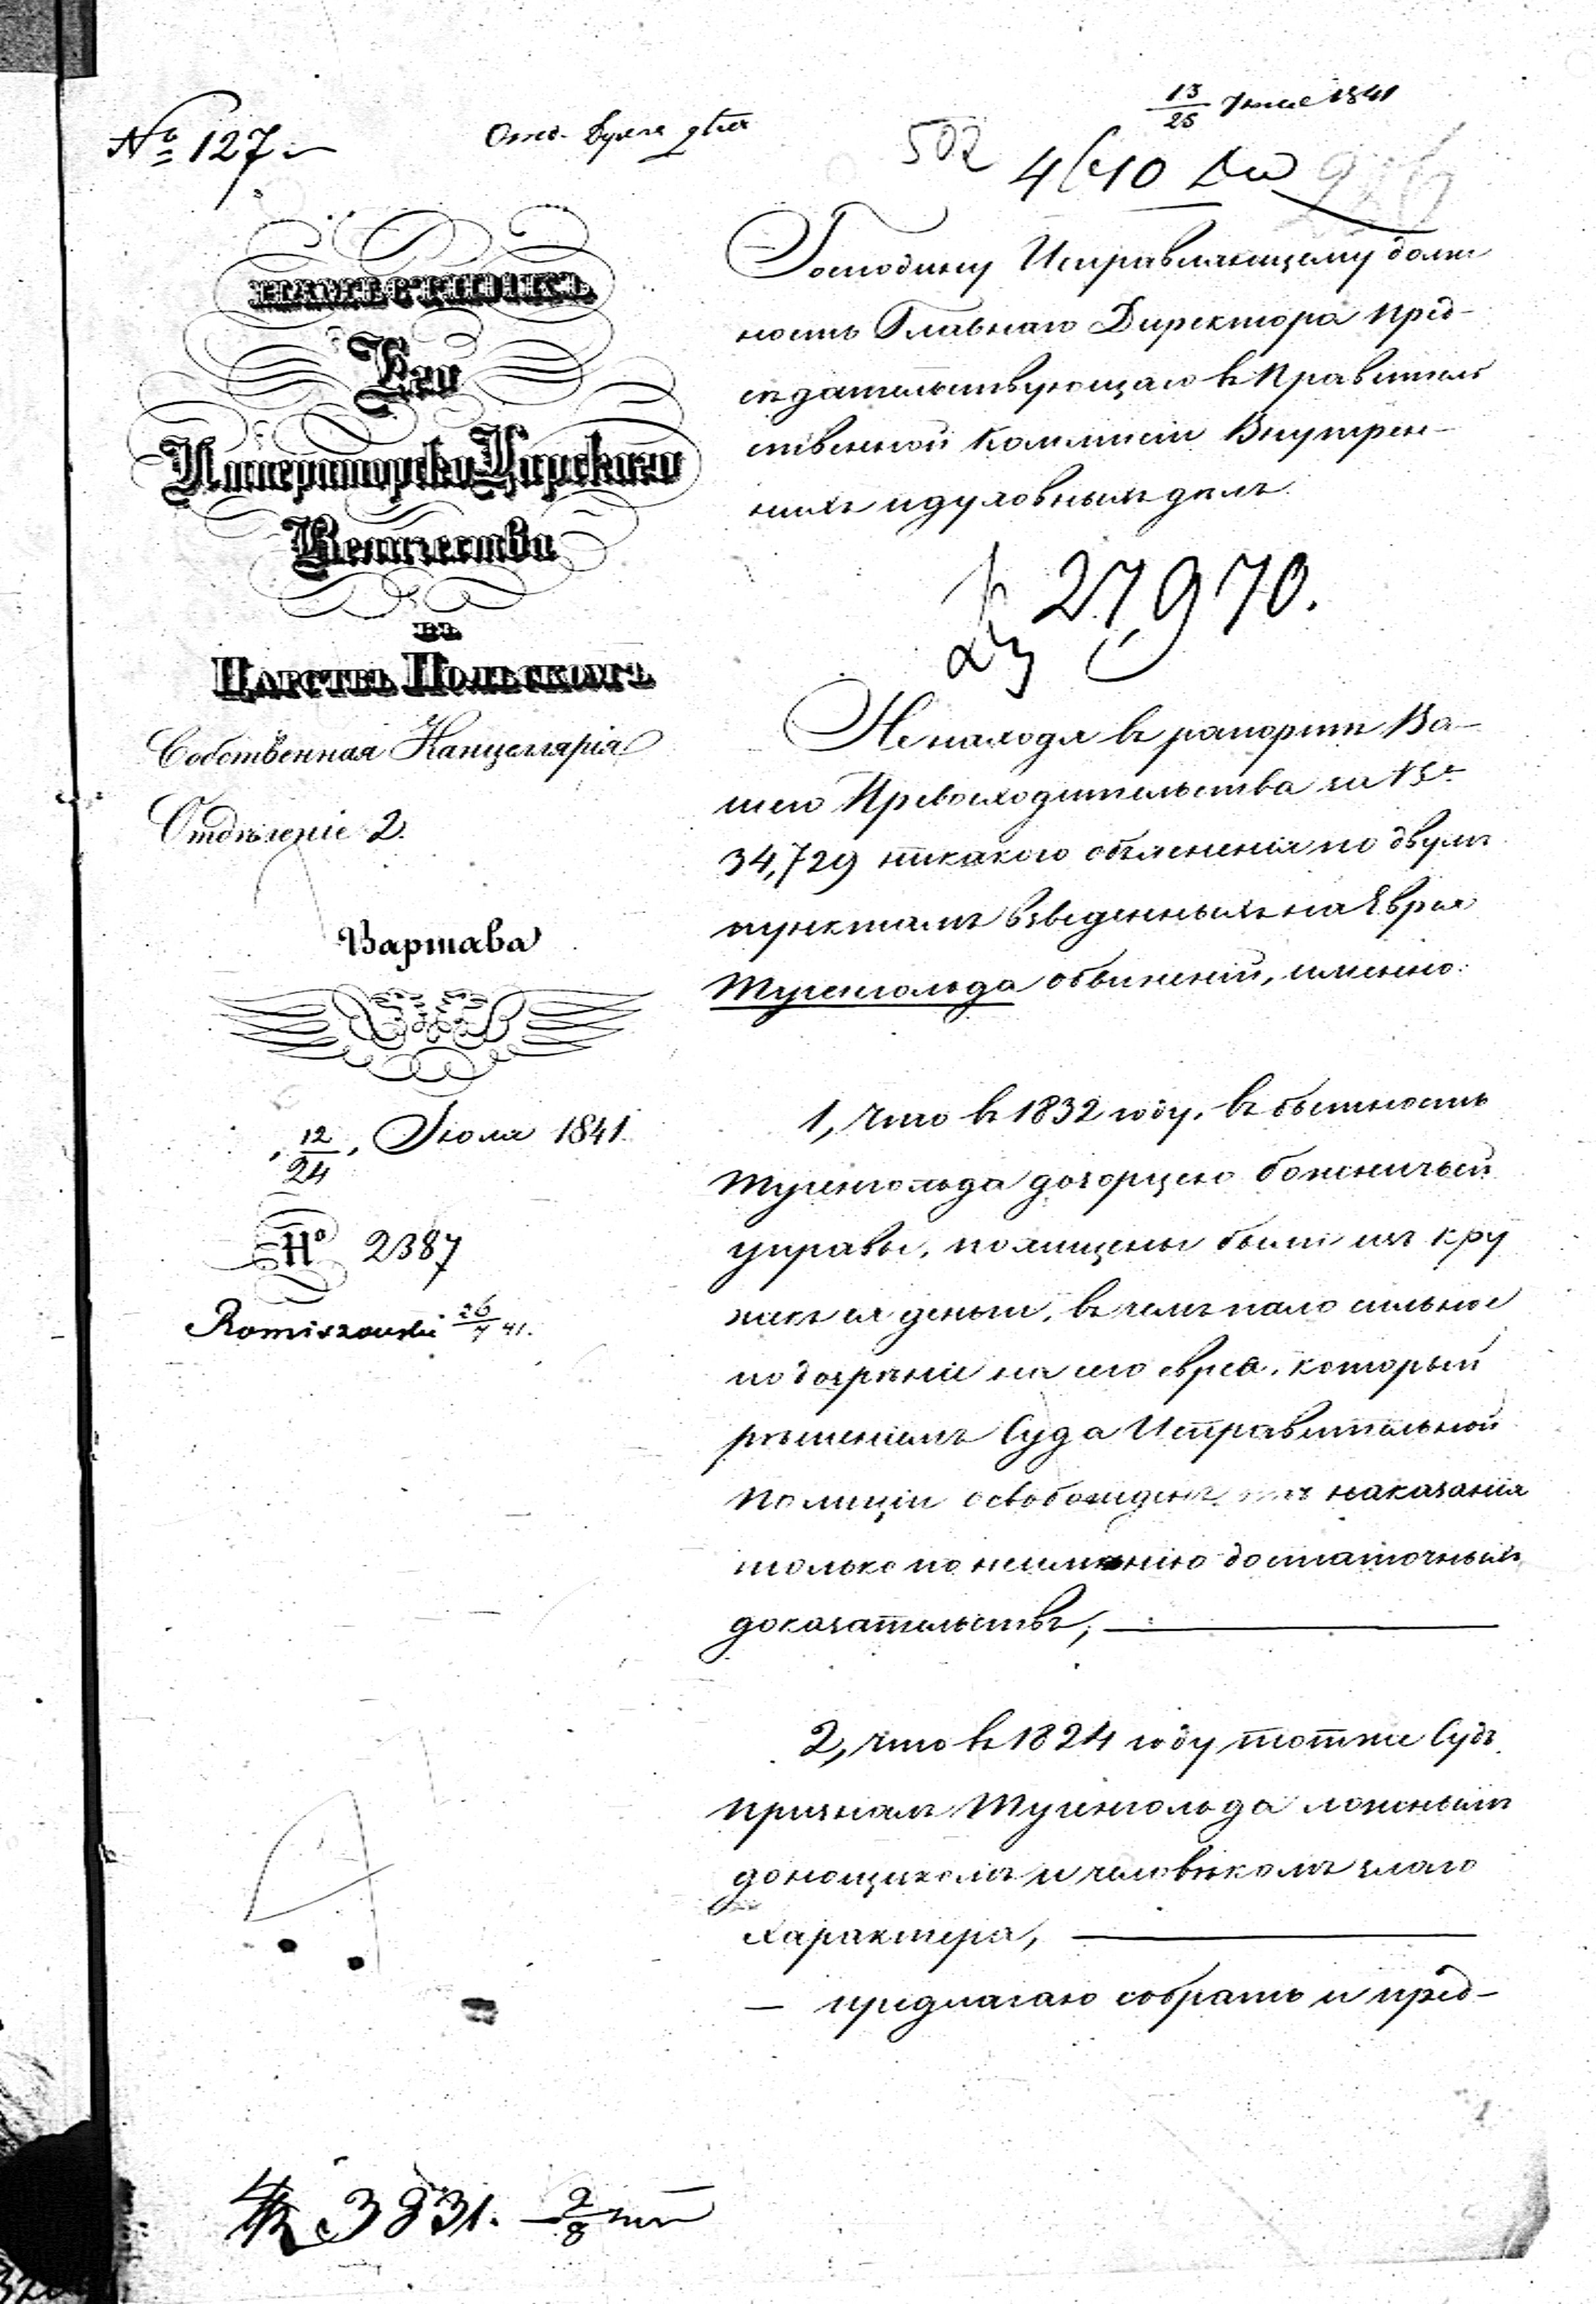 № 127
13/25 Июля 1841
502
НАМѢСТНИКЪ
Его
Императорско Царскаго
Величества
ВЪ
ЦАРСТВѢ ПОЛЬСКОМЪ
Собственная Канцелярія
Отдѣленіе 2.
Варшава
12/24 Іюля 1841.
№ 2387
Romiszowski 26/7 41.
Господину Исправляющему долж-
ность Главнаго Директора пред-
сѣдательствующаго въ Правитель-
ственной Коммисіи Внутрен-
нихъ и духовныхъ дѣлъ.
27970.
Не находя въ рапортѣ Ва-
шего Превосходительства за №
34,729 никакого объясненія по двумъ
пунктамъ взведенныхъ на Еврея
Тугенгольда обвиненій, именно:
1, что въ 1832 году, въ бытность
Тугенгольда дозорцею божничьей
управы, похищены были изъ кру
жекъ ея деньги, въ чемъ пало сильное
подозрѣніе на сего еврея, который
рѣшеніемъ Суда Исправительной
Полиціи освобожденъ отъ наказанія
только по неимѣнію достаточныхъ
доказательствъ,
2, что въ 1824 году тотже Судъ
призналъ Тугенгольда ложнымъ
доносщикомъ и человѣкомъ злаго
характера,
— предлагаю собрать и пред-
3831. 2/8